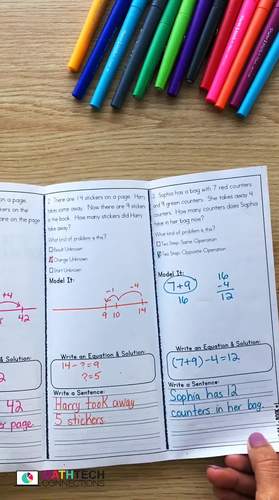 on a page.
kers on the
are on the page
+4
42
& Solution:
2
e:
42
er page.
2. There are 14 stickers on a page. Harry
takes some away. Now there are 9 stickers
in the book. How many stickers did Harry
take away?
What kind of problem is this?
Result Unknown
Change Unknown
Start Unknown
Model It:
-1
-4
9 10 14
Write an Equation & Solution:
14 - ? = 9
? = 5
Write a Sentence:
Harry took away
5 stickers
3. Sophia has a bag with 7 red counters
and 9 green counters. She takes away 4
counters. How many counters does Sophia
have in her bag now?
What kind of problem is this?
Two Step: Same Operation
Two Step: Opposite Operation
Model It:
7+9
16
16
-4
12
Write an Equation & Solution:
(7+9)-4=12
Write a Sentence:
Sophia has 12
counters in her bag.
MATHTECH
CONNECTIONS